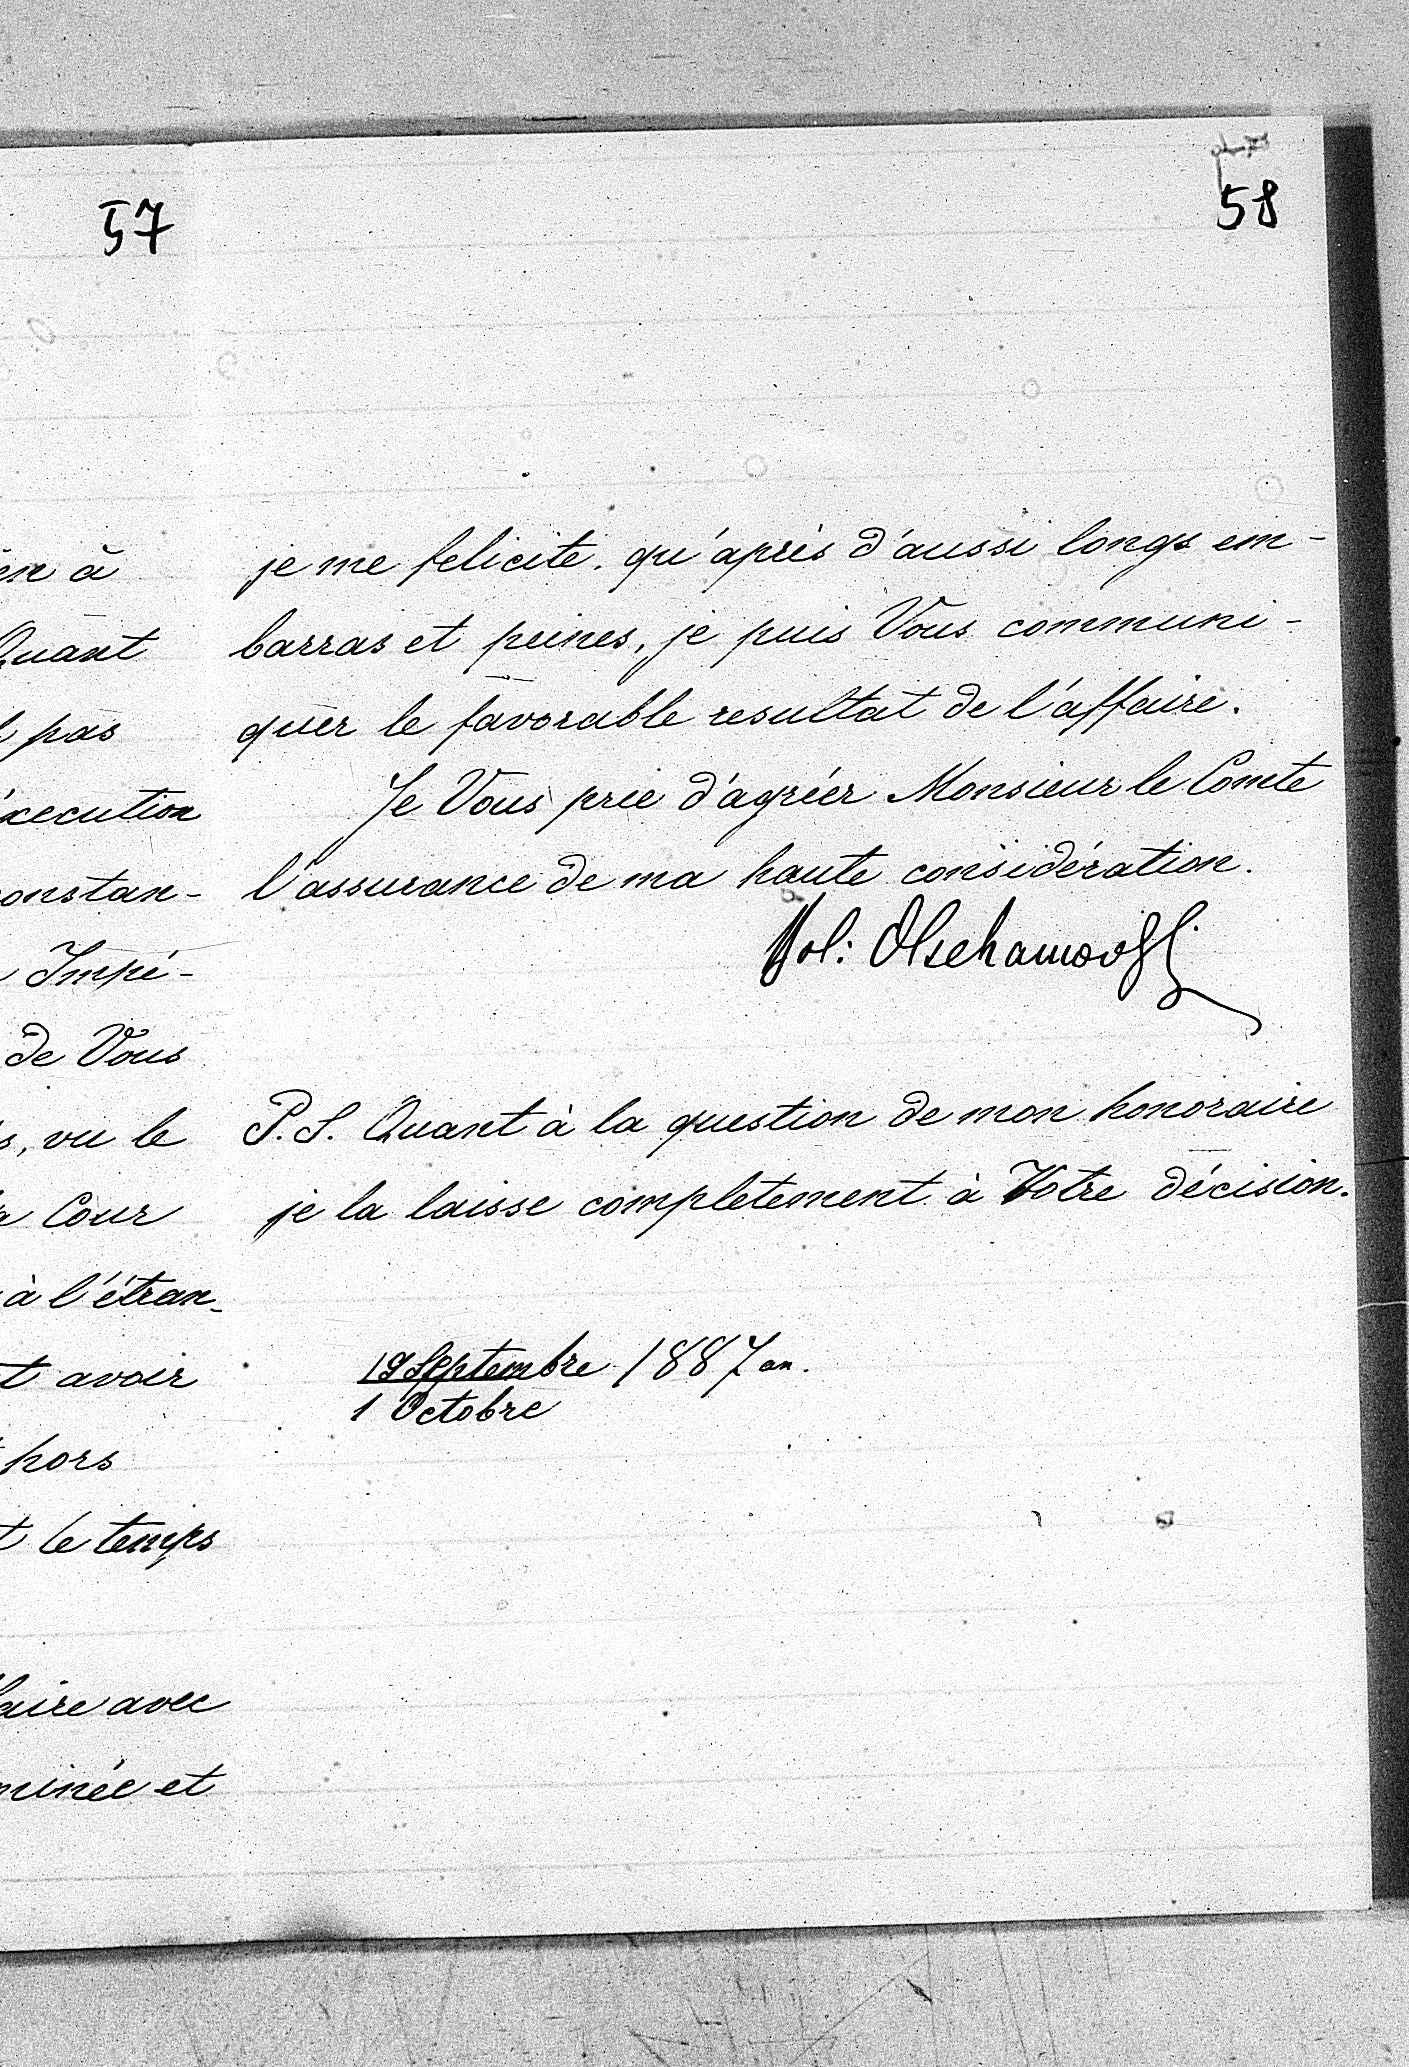 57
ên à
Quant
pas
éxecution
constan-
Impé-
de Vous
s, vu le
la Cour
à l'étran-
t avoir
hors
t le temps
faire avec
minée et
58
je me felicite. qu'après d'aussi longs em-
barras et peines, je puis Vous communi-
quer le favorable resultat de l'affaire.
Je Vous prie d'agréer Monsieur le Comte
l'assurance de ma haute considération.
P.S. Quant à la question de mon honoraire
je la laisse completement à Votre décision.
19 Septembre 1887 an.
1 Octobre